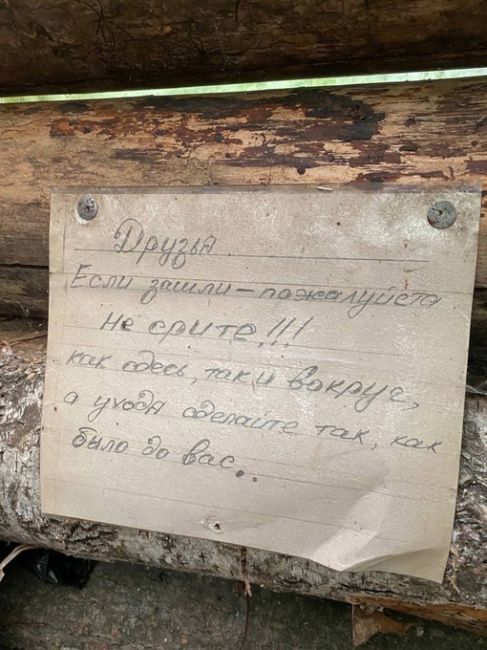 Друзья
Если зашли – пожалуйста
не срите!!!
как здесь, так и вокруг,
а уходя сделайте так, как
было до вас..